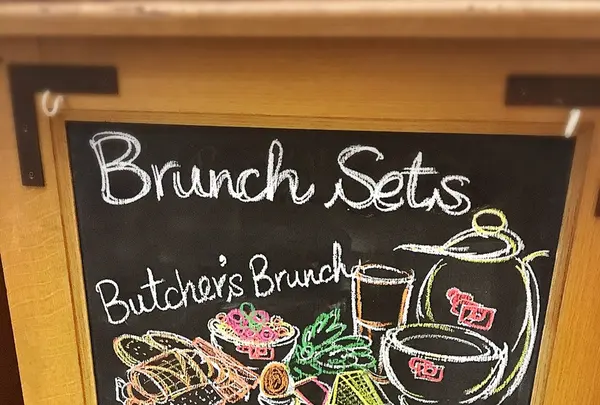 Brunch Sets
Butcher's Brunch